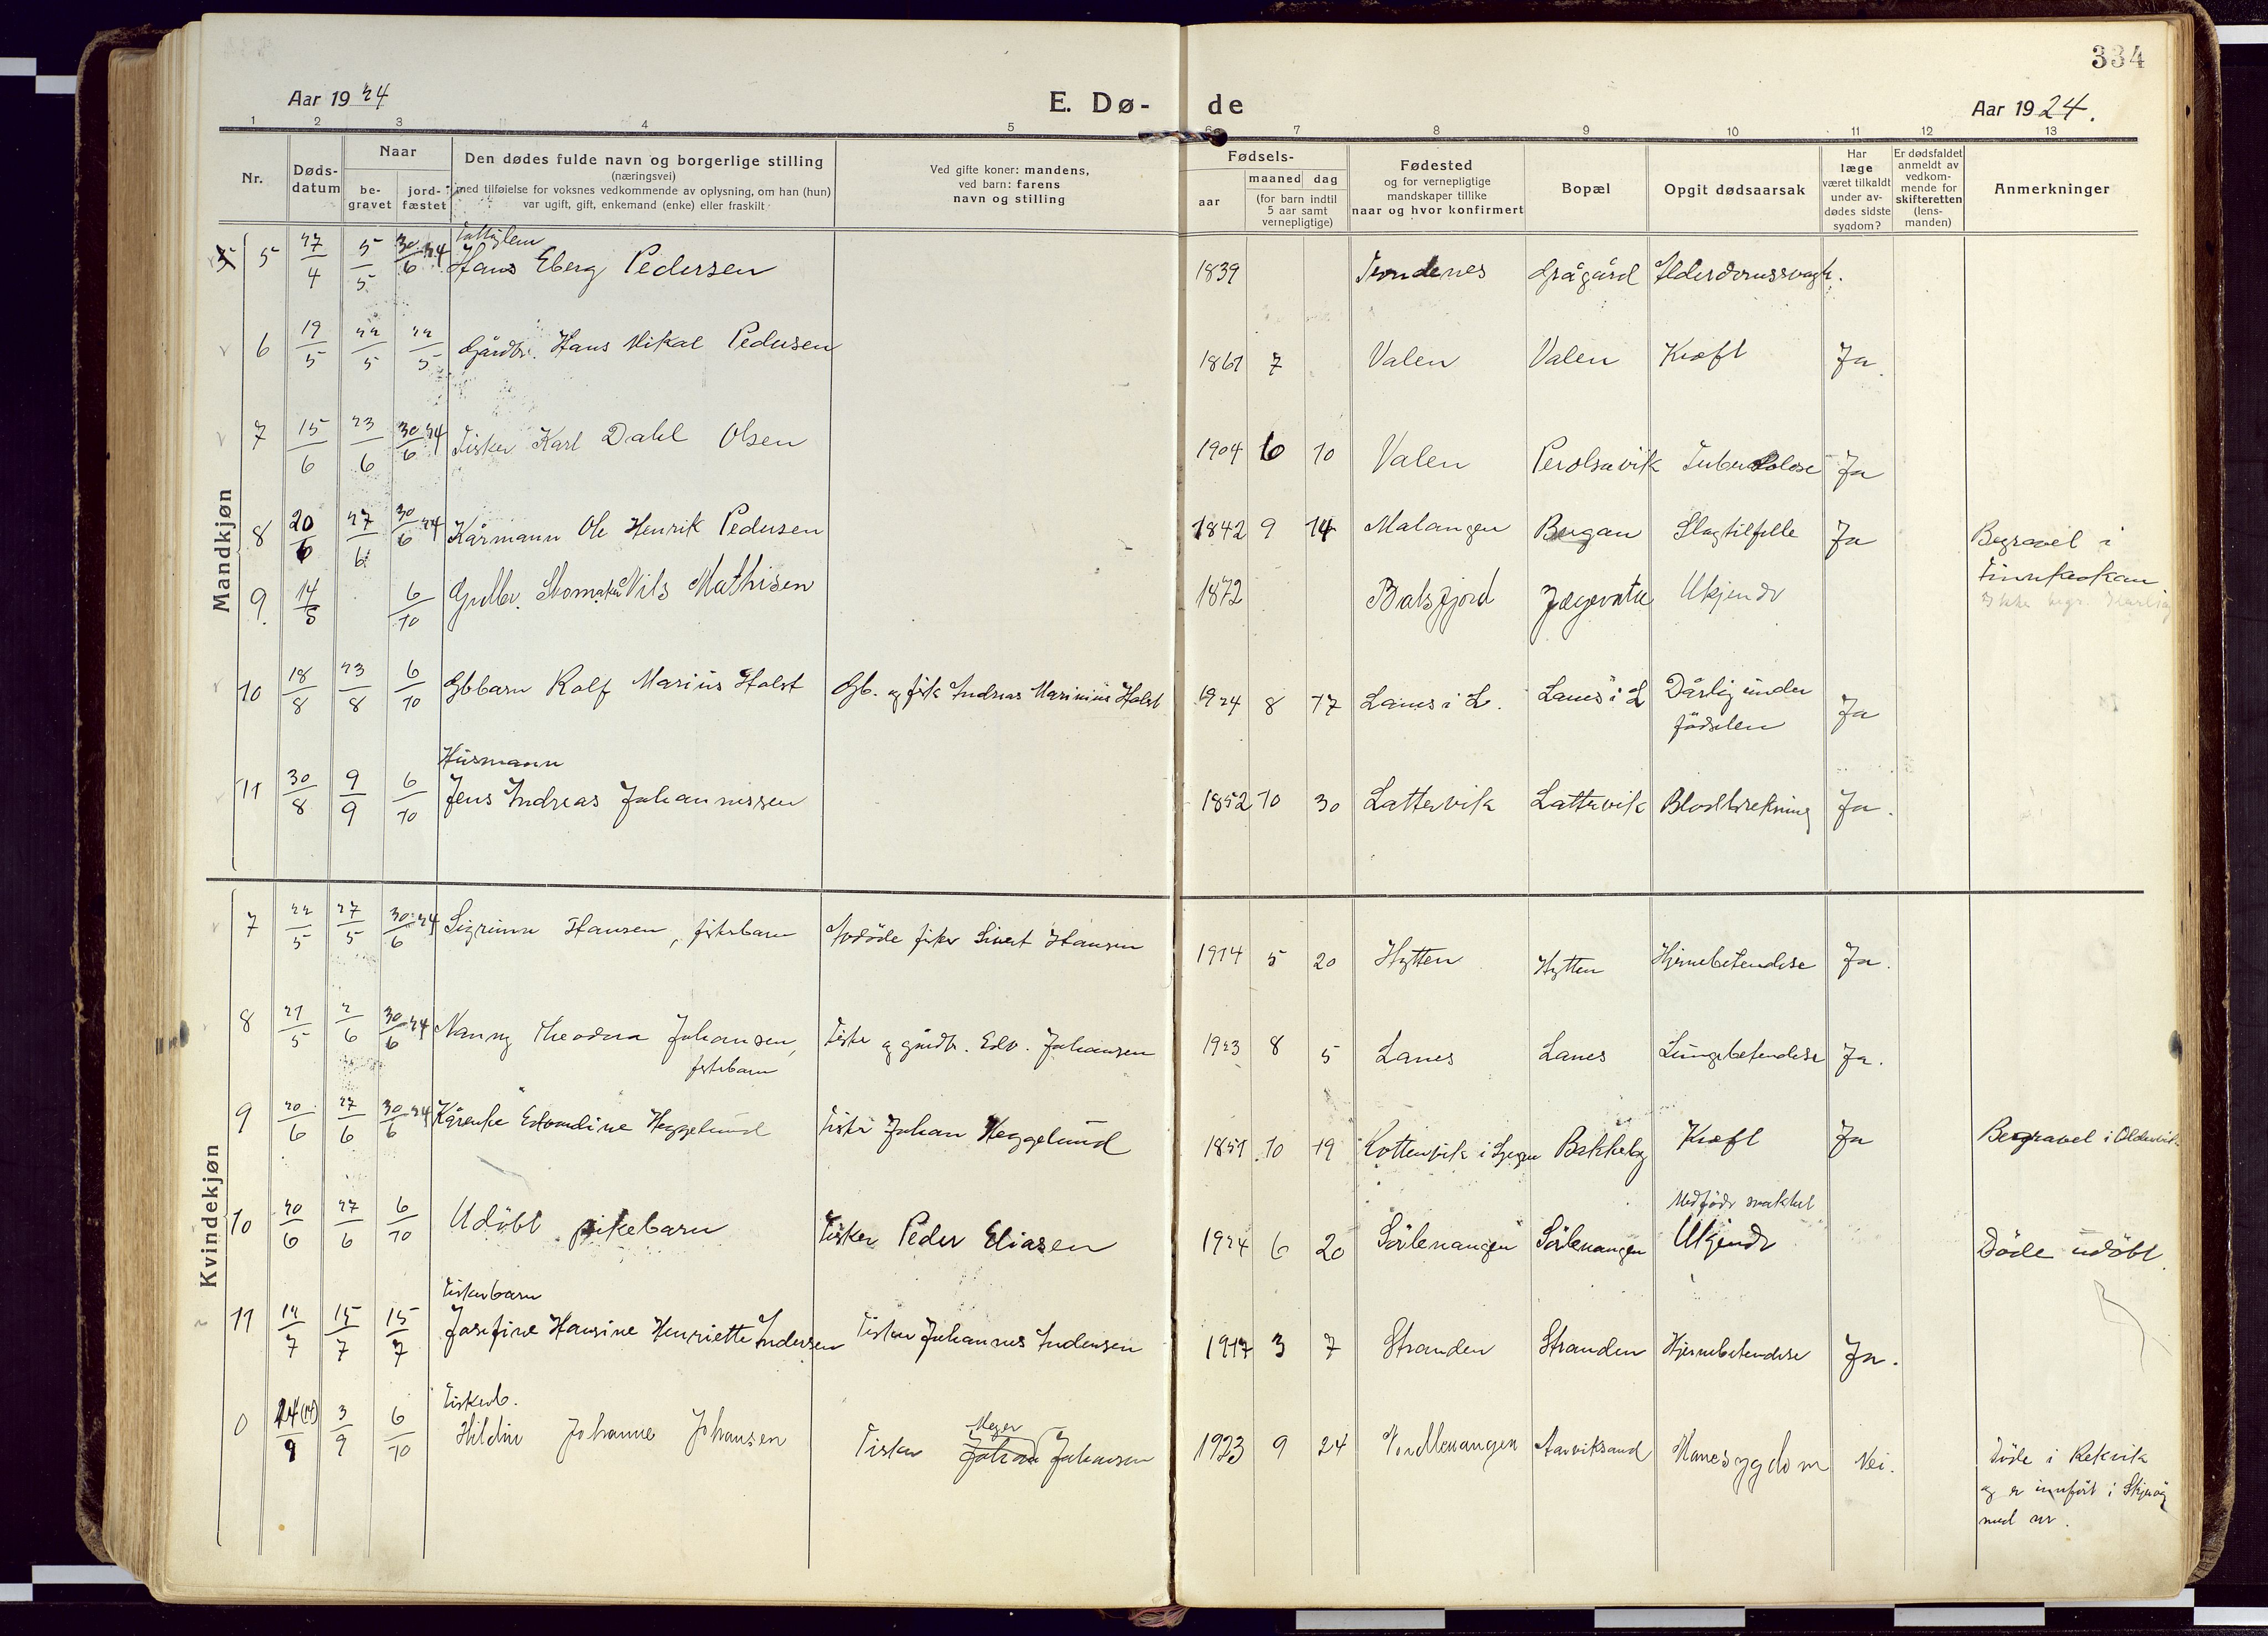 334
Aar 1924
E. Dø-
de
Aar 1924.
1 2 3 4 5 6 7 8 9 10 11 12 13
Nr.
Døds-datum
Naar
be-gravet
jord-fæstet
Den dødes fulde navn og borgerlige stilling
(næringsvei)
med tilføielse for voksnes vedkommende av oplysning, om han (hun)
var ugift, gift, enkemand (enke) eller fraskilt
Ved gifte koner: mandens,
ved barn: farens
navn og stilling
Fødsels-
aar
maaned dag
(for barn indtil
5 aar samt
vernepligtige)
Fødested
og for vernepligtige
mandskaper tillike
naar og hvor konfirmert
Bopæl
Opgit dødsaarsak
Har
læge
været tilkaldt
under av-
dødes sidste
sygdom?
Er dødsfaldet
anmeldt av
vedkom-
mende for
skifteretten
(lens-
manden)
Anmerkninger
Mandkjøn
5 27/4 5/5 30/6 24 Hans Eberg Pedersen 1839 Grågård
6 19/5 22/5 22/5 Gårdbr. Hans Mikal Pedersen 1861 7 Valen Valen Kræft Ja.
7 15/6 23/6 30/6 24 Fisker Karl Dahl Olsen 1904 6 10 Valen Perolsavik Tuberkolose Ja
8 20/6 27/6 30/6 24 Kårmann Ole Henrik Pedersen 1842 9 14 Malangen Bergan Slagtilfelle Ja Begravet i
9. 14/5 6/10 Nils Mathisen 1872 Balsfjord Jægervatn Ukjendt
10 18/8 23/8 6/10 Gbbarn Rolf Marius Holst Gb. og fisk Andreas Marinius Holst 1924 8 17 Lanes i L. Lanes i L Dårlig under
fødselen Ja
Husmann
11 30/8 9/9 6/10 Jens Andreas Johannessen 1852 10 30 Lattervik Lattervik Blodbrekning Ja.
Kvindekjøn
7 22/5 27/5 30/6 24 Sigrunn Hansen, fiskebarn Avdöde fisker Sivert Hansen 1914 5 20 Hytten Hytten Hjernebetendelse Ja.
8 21/5 2/6 30/6 24 Nanny Theodora Johansen,
fiskebarn Fisker og gårdbr. Edv. Johansen 1923 8 5 Lanes Lanes Lungebetendelse Ja.
9 20/6 27/6 30/6 24 Edvardine Heggelund Fisker Johan Heggelund 1851 10 19 Bakkeby Kræft Ja Begravet i Oldervik
10 20/6 27/6 6/10 Udöbt pikebarn Fisker Peder Eliasen 1924 6 20 Sörlenangen Sörlenangen Medfödt svakhet
Ukjendt Döde udöbt.
Fiskerbarn
11 12/7 15/7 15/7 Josefine Hansine Henriette Andersen Fisker Johannes Andersen 1917 3 7 Stranden Stranden Hjernebetendelse Ja.
Fiskerb.
0 24 (14)/9 3/9 6/10 Hildur Johanne Johansen Fisker Meyer Johan Johansen 1923 9 24 Nordlenangen Aarviksand Mavesygdom Nei. Döde i Rekvik
og er innfört i Skjervöy
med nr.